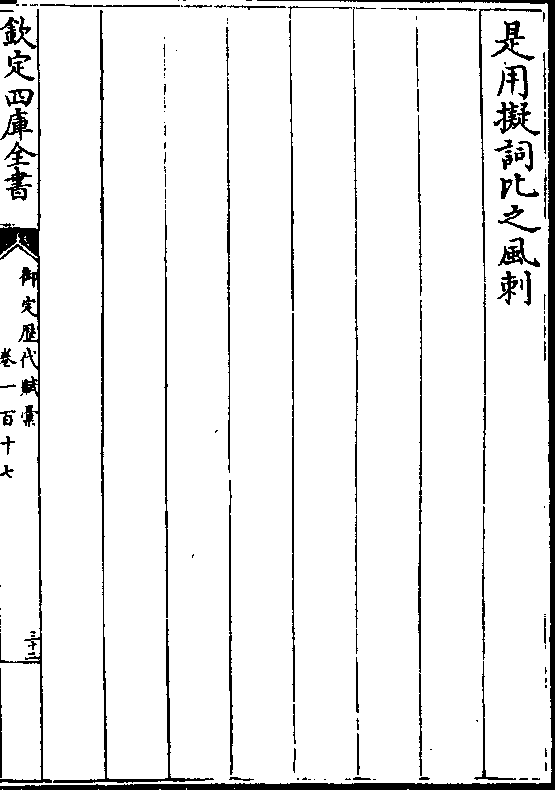 是用擬詞比之風刺
欽定四庫全書
御定歷代賦彙
卷一百十七
三十二